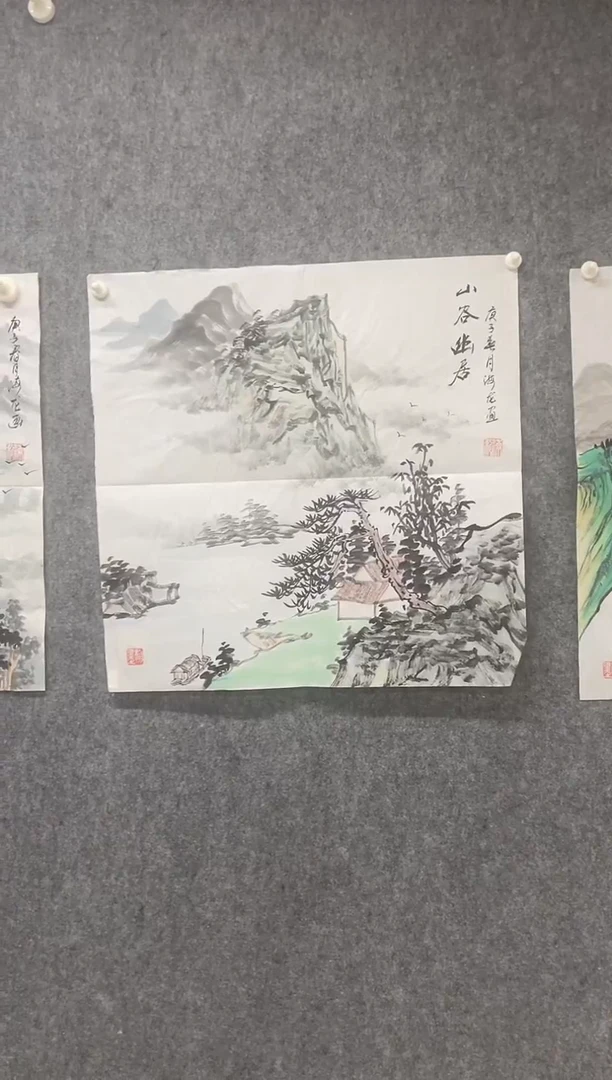 山谷幽居
庚子春月海龙画
庚子春月海龙画